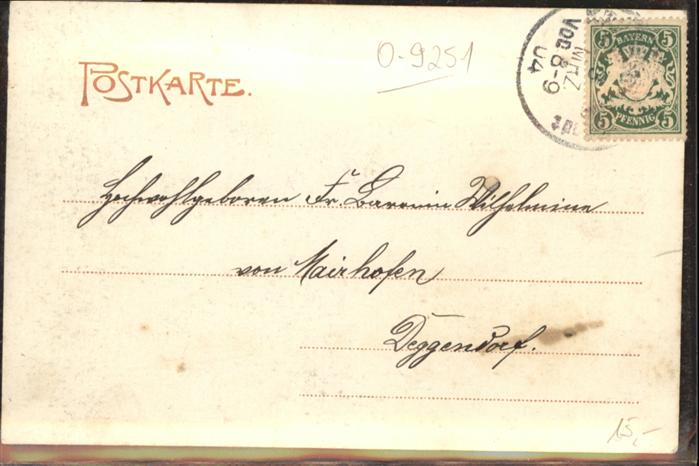 POSTKARTE.
O-9251
MRZ.
VOR.8-9
04
5 BAYERN 5
5 PFENNIG 5
Hochwohlgeboren Fr. Baronin Wilhelmine
von Mairhofen
Deggendorf.
15,-